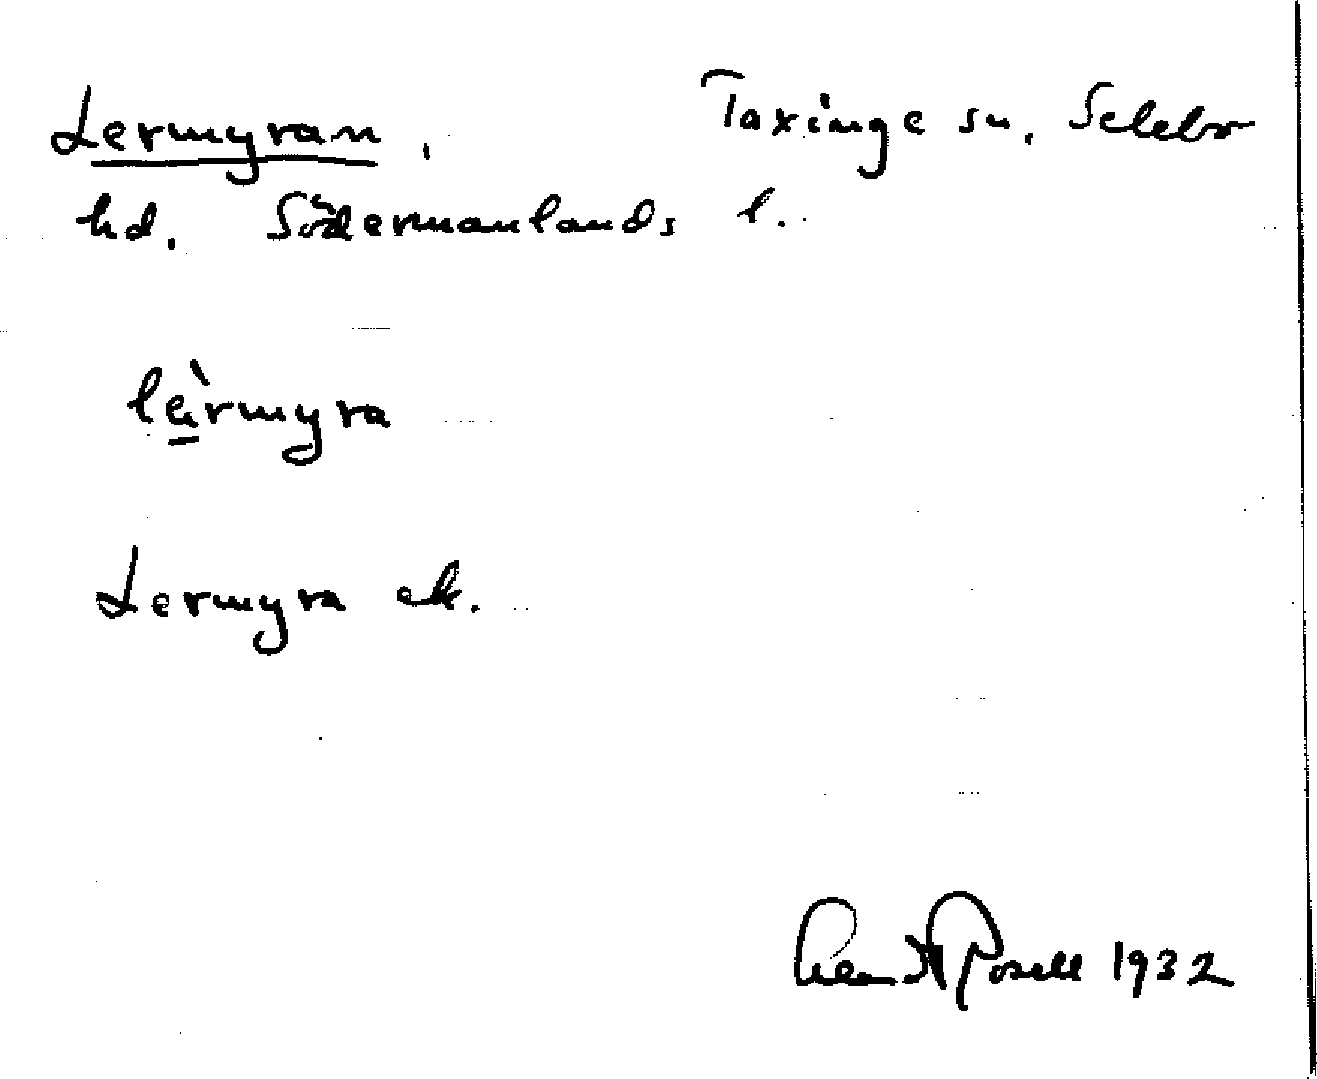 Lermyran, Taxinge sn, Selebo
hd, Södermanlands l.
lèrmyra
Lermyra ek.
Rosell 1932